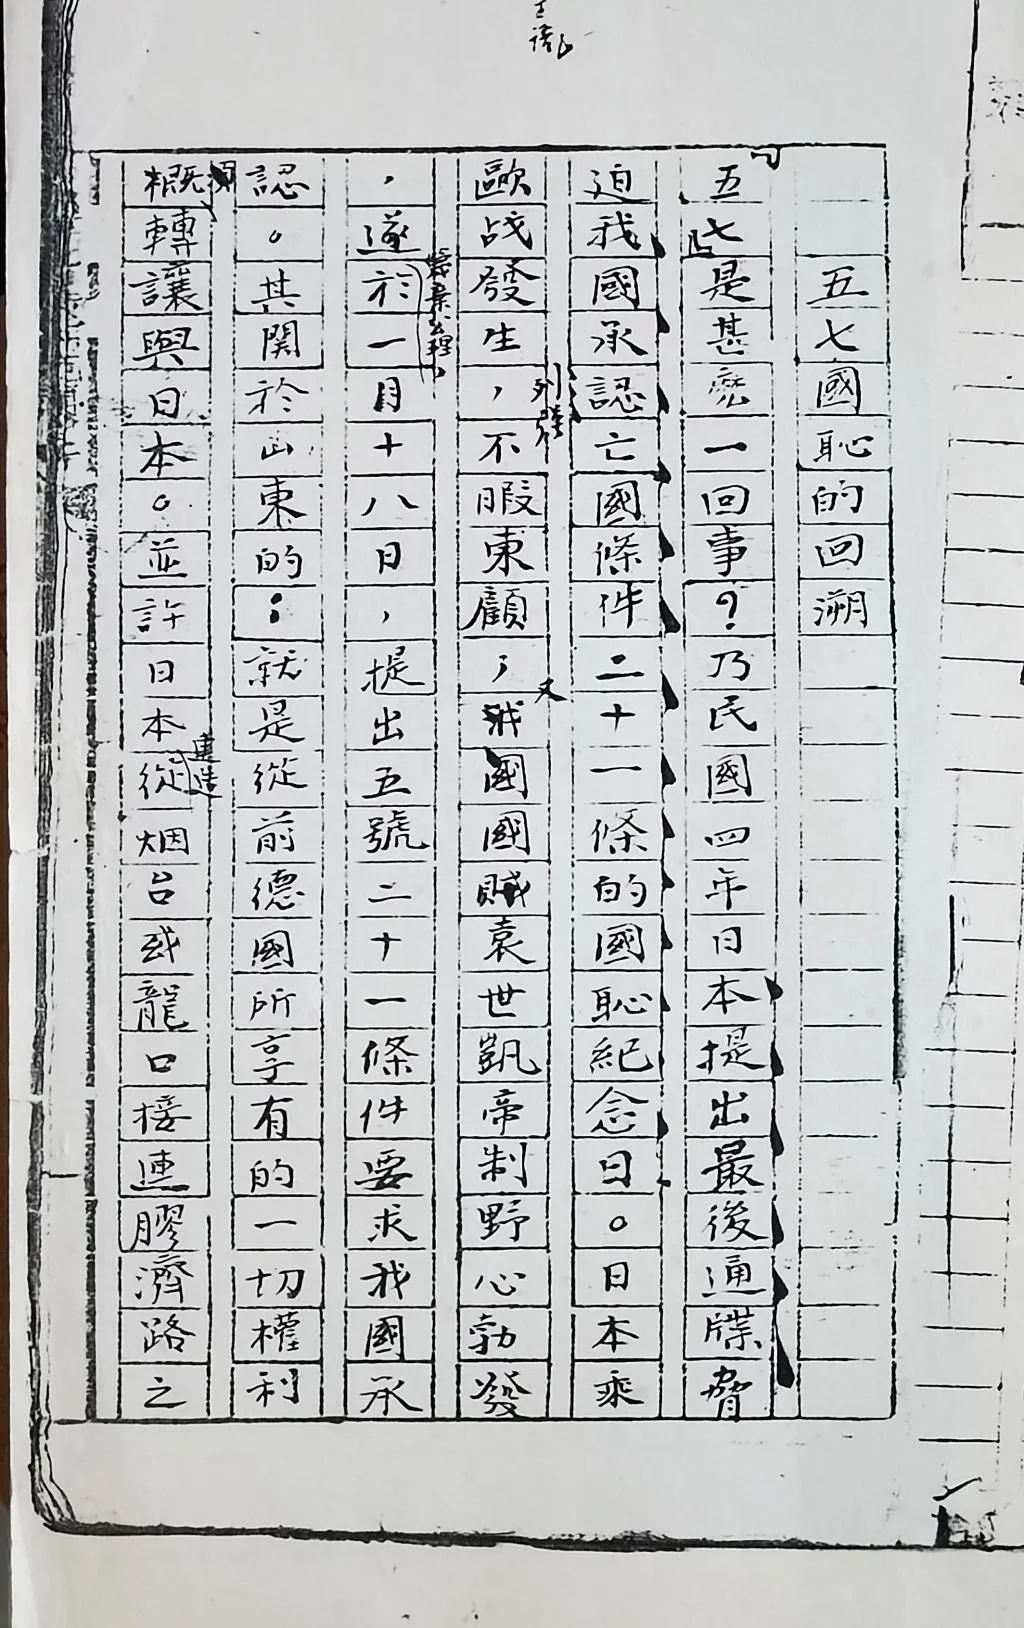 五七國恥的回溯
五七是甚麽一回事？乃民國四年日本提出最後通牒脅
迫我國承認亡國條件二十一條的國恥紀念日。日本乘
列強
歐战發生，不暇東顧，又我國國賊袁世凱帝制野心勃發
，遂於一月十八日，提出五號二十一條件要求我國承
公理，
認。其関於山東的：就是從前德國所享有的一切權利
須
概轉讓與日本。並許日本建造從烟台或龍口接連膠濟路之